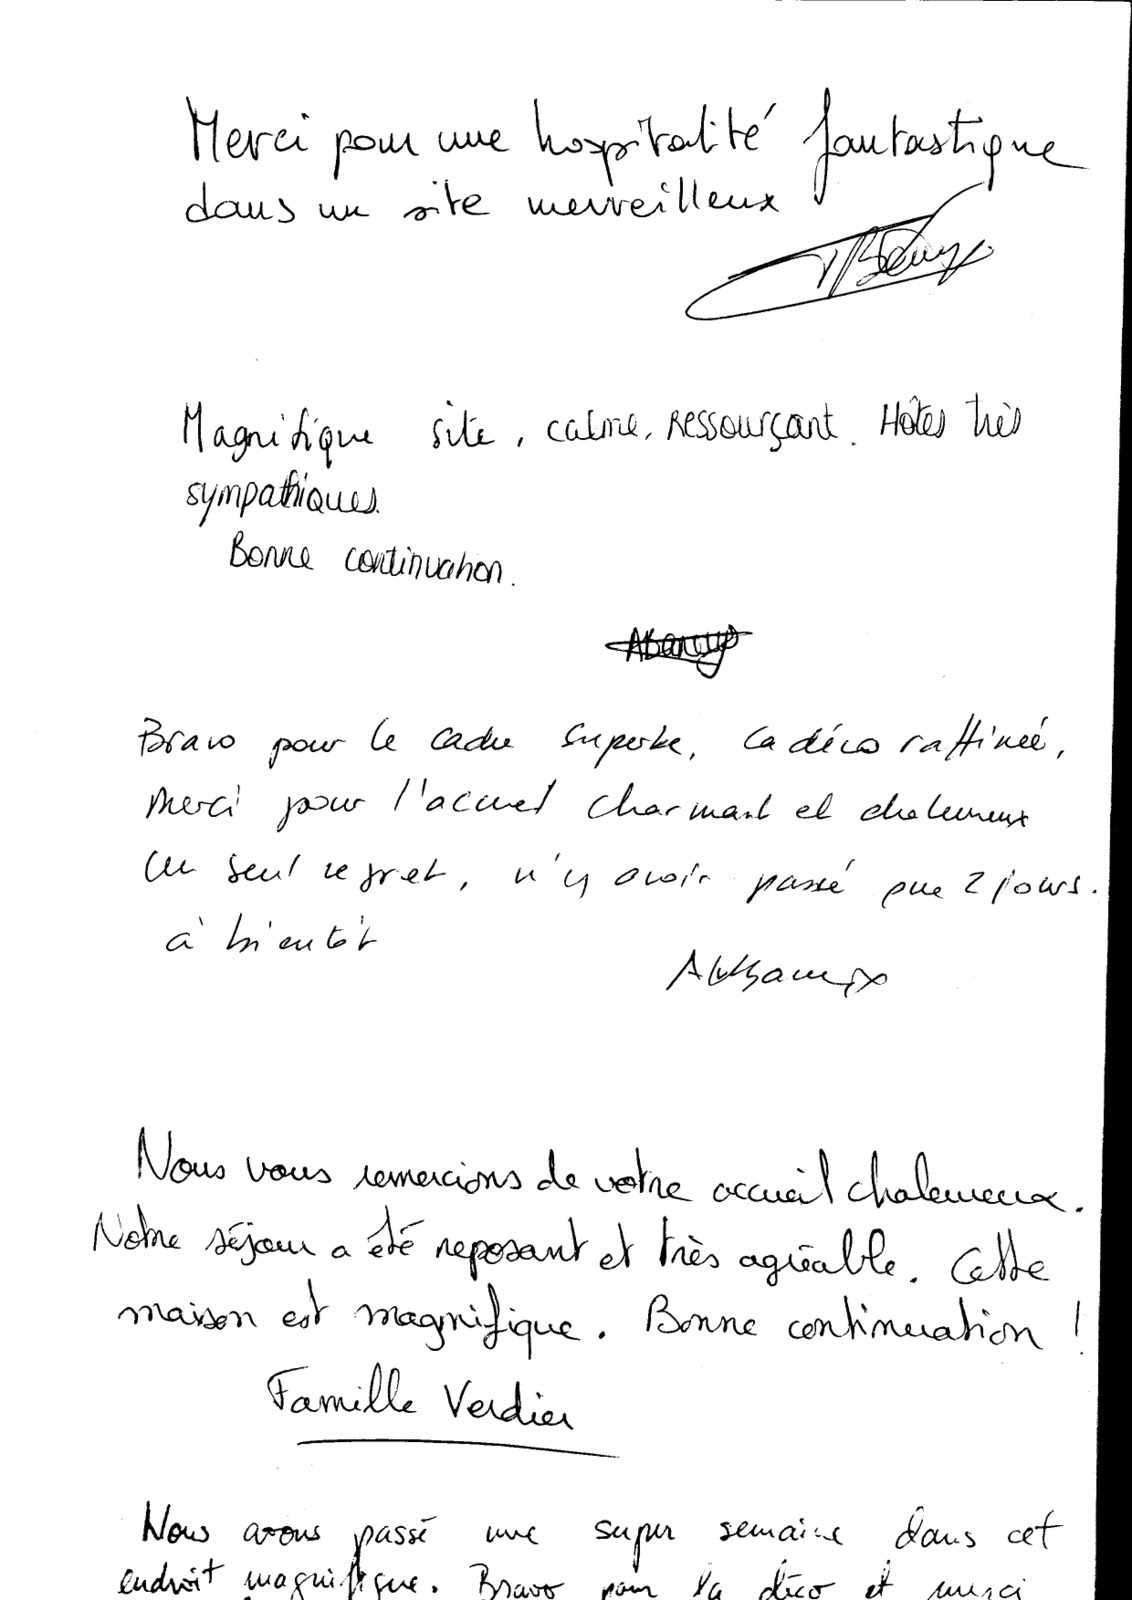 Merci pour une hospitalité fantastique
dans un site merveilleux
Magnifique site, calme, ressourçant. Hôtes très
sympathiques.
Bonne continuation.
Bravo pour le cadre superbe, la déco raffinée,
Merci pour l'accueil charmant et chaleureux
un seul regret, n'y avoir passé que 2 jours.
à bientôt
Nous vous remercions de votre accueil chaleureux.
Notre séjour a été reposant et très agréable. Cette
maison est magnifique. Bonne continuation !
Famille Verdier
Nous avons passé une super semaine dans cet
endroit magnifique. Bravo pour la déco et merci